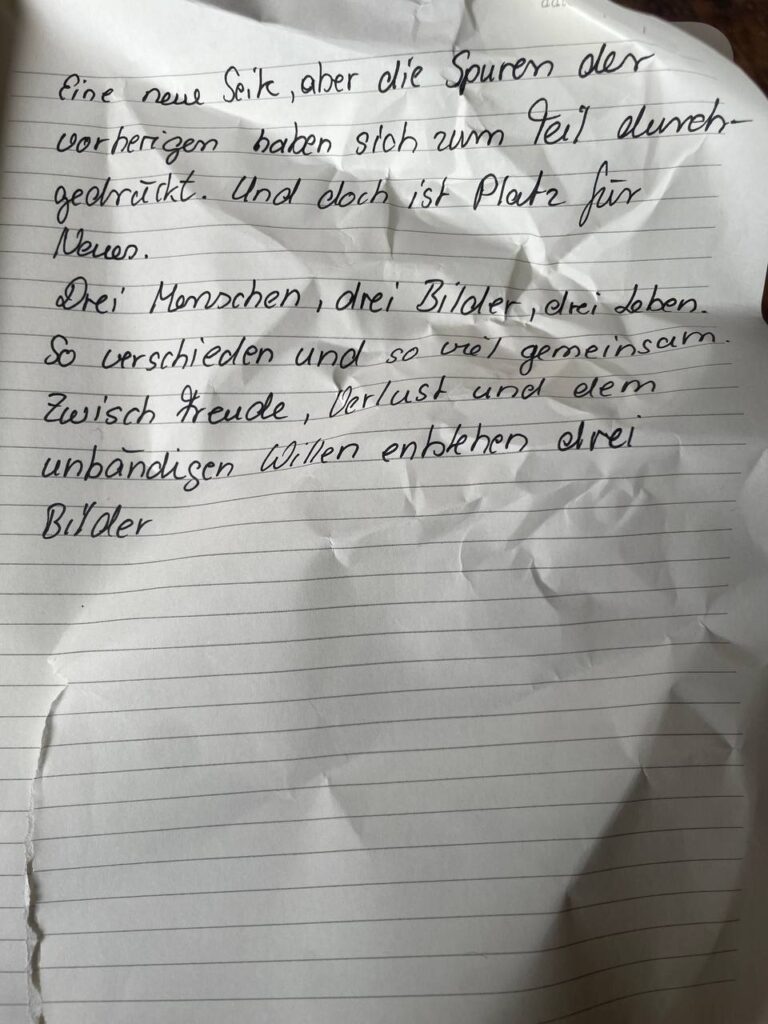 Eine neue Seite, aber die Spuren der
vorherigen haben sich zum Teil durch-
gedrückt. Und doch ist Platz für
Neues.
Drei Menschen, drei Bilder, drei Leben.
So verschieden und so viel gemeinsam.
Zwisch Freude, Verlust und dem
unbändigen Willen entstehen drei
Bilder